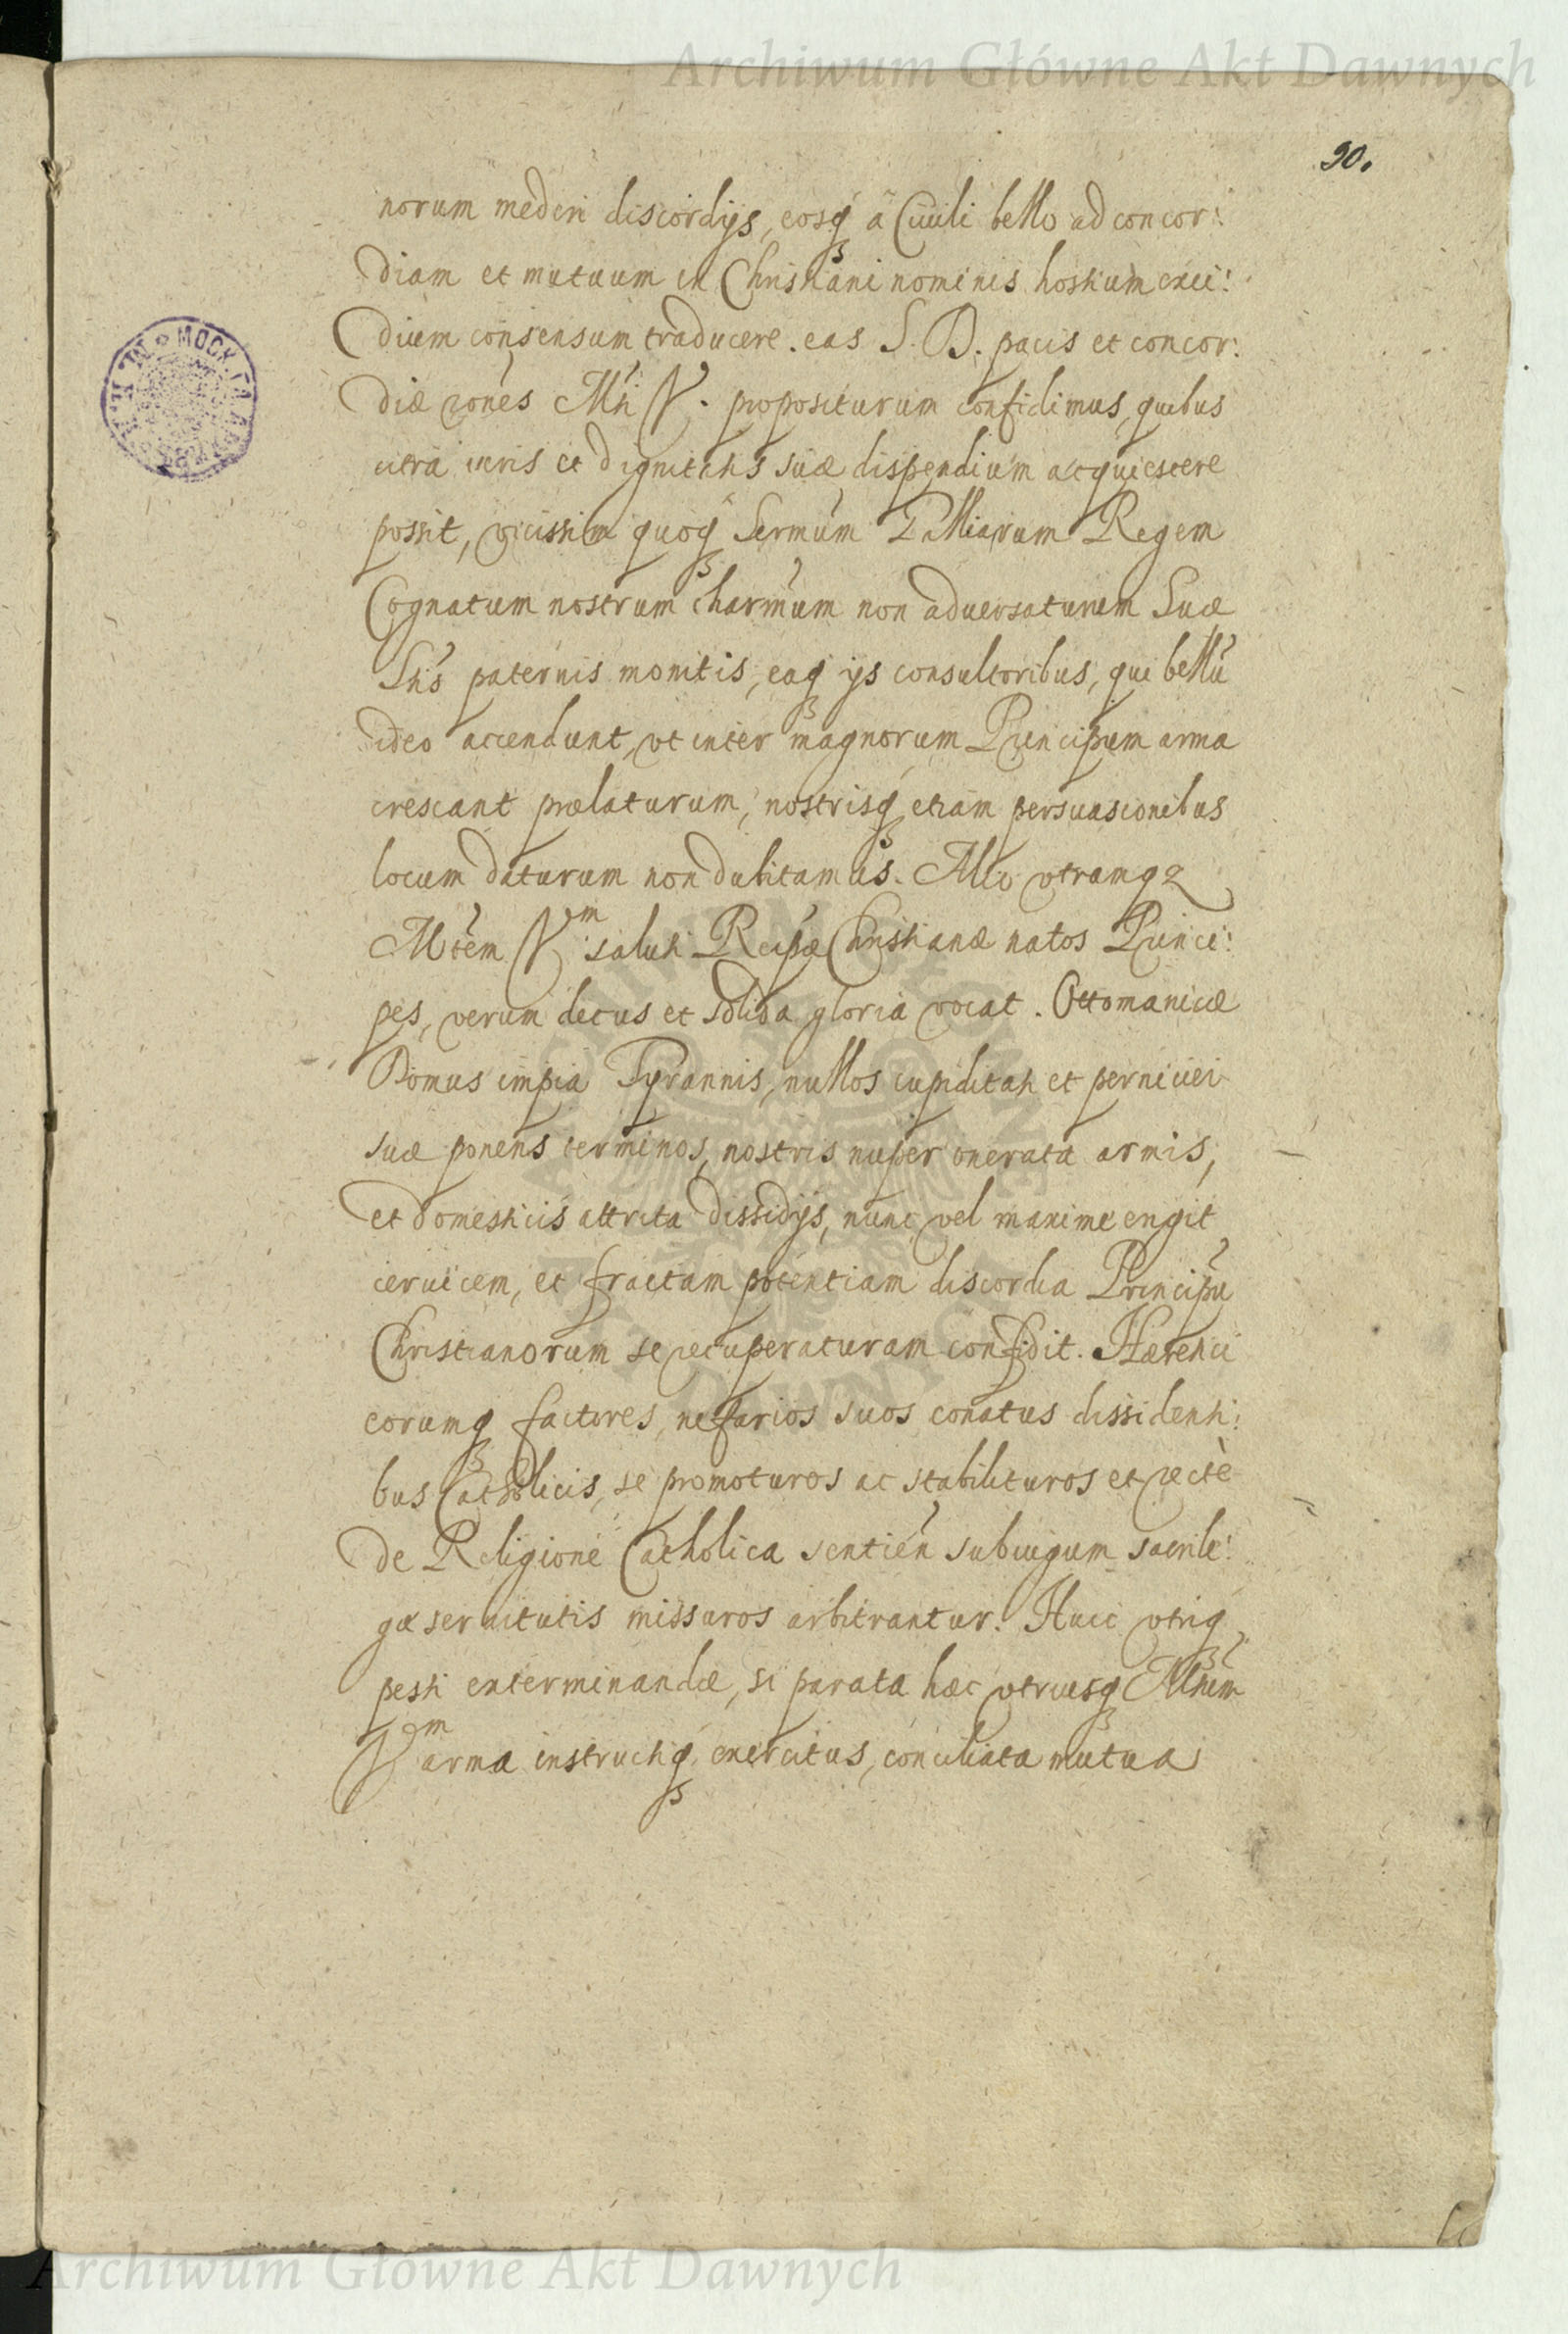 Archiwum Główne Akt Dawnych
90.
norum mederi discordijs, eosq3 à Ciuili bello ad concor:
diam et mutuum in Christiani nominis hostium exci:
dium consensum traducere. eas S. D. pacis et concor:
diæ rónes Mti V. propositurum confidimus, quibus
citra iuris et dignitatis suæ dispendium acquiescere
possit, vicissim quoq3 Sermúm Galliarum Regem
Cognatum nostrum charmúm non aduersaturum Suæ
Stis paternis monitis, eaq3 ijs consultoribus, qui bellú
ideo accendunt, vt inter magnorum Principum arma
crescant prælaturum, nostrisq3 etiam persuasionibus
locum daturum non dubitamus. Alio vtramq3
Mtem Vrm saluti Reipæ Christianæ natos Princi:
pes, verum decus et solida gloria vocat. Ottomanicæ
Domus impia Tyrannis, nullos cupiditati et perniciei
suæ ponens terminos, nostris nuper onerata armis,
et domesticis attrita dissidijs, nunc vel maxime erigit
ceruicem, et fractam potentiam discordia Principú
Christianorum se recuperaturam confidit. Hæretici
eorumq3 factores, nefarios suos conatus dissidenti:
bus Catholicis, se promoturos ac stabilituros et rectè
de Religione Catholica sentien sub iugum sacrile:
gæ seruitutis missuros arbitrantur. Huic vtriq3
pesti exterminandæ, si parata hæc vtriusq3 Mtum
Vrm arma instructiq3 exercitus, conciliata mutua
Archiwum Główne Akt Dawnych